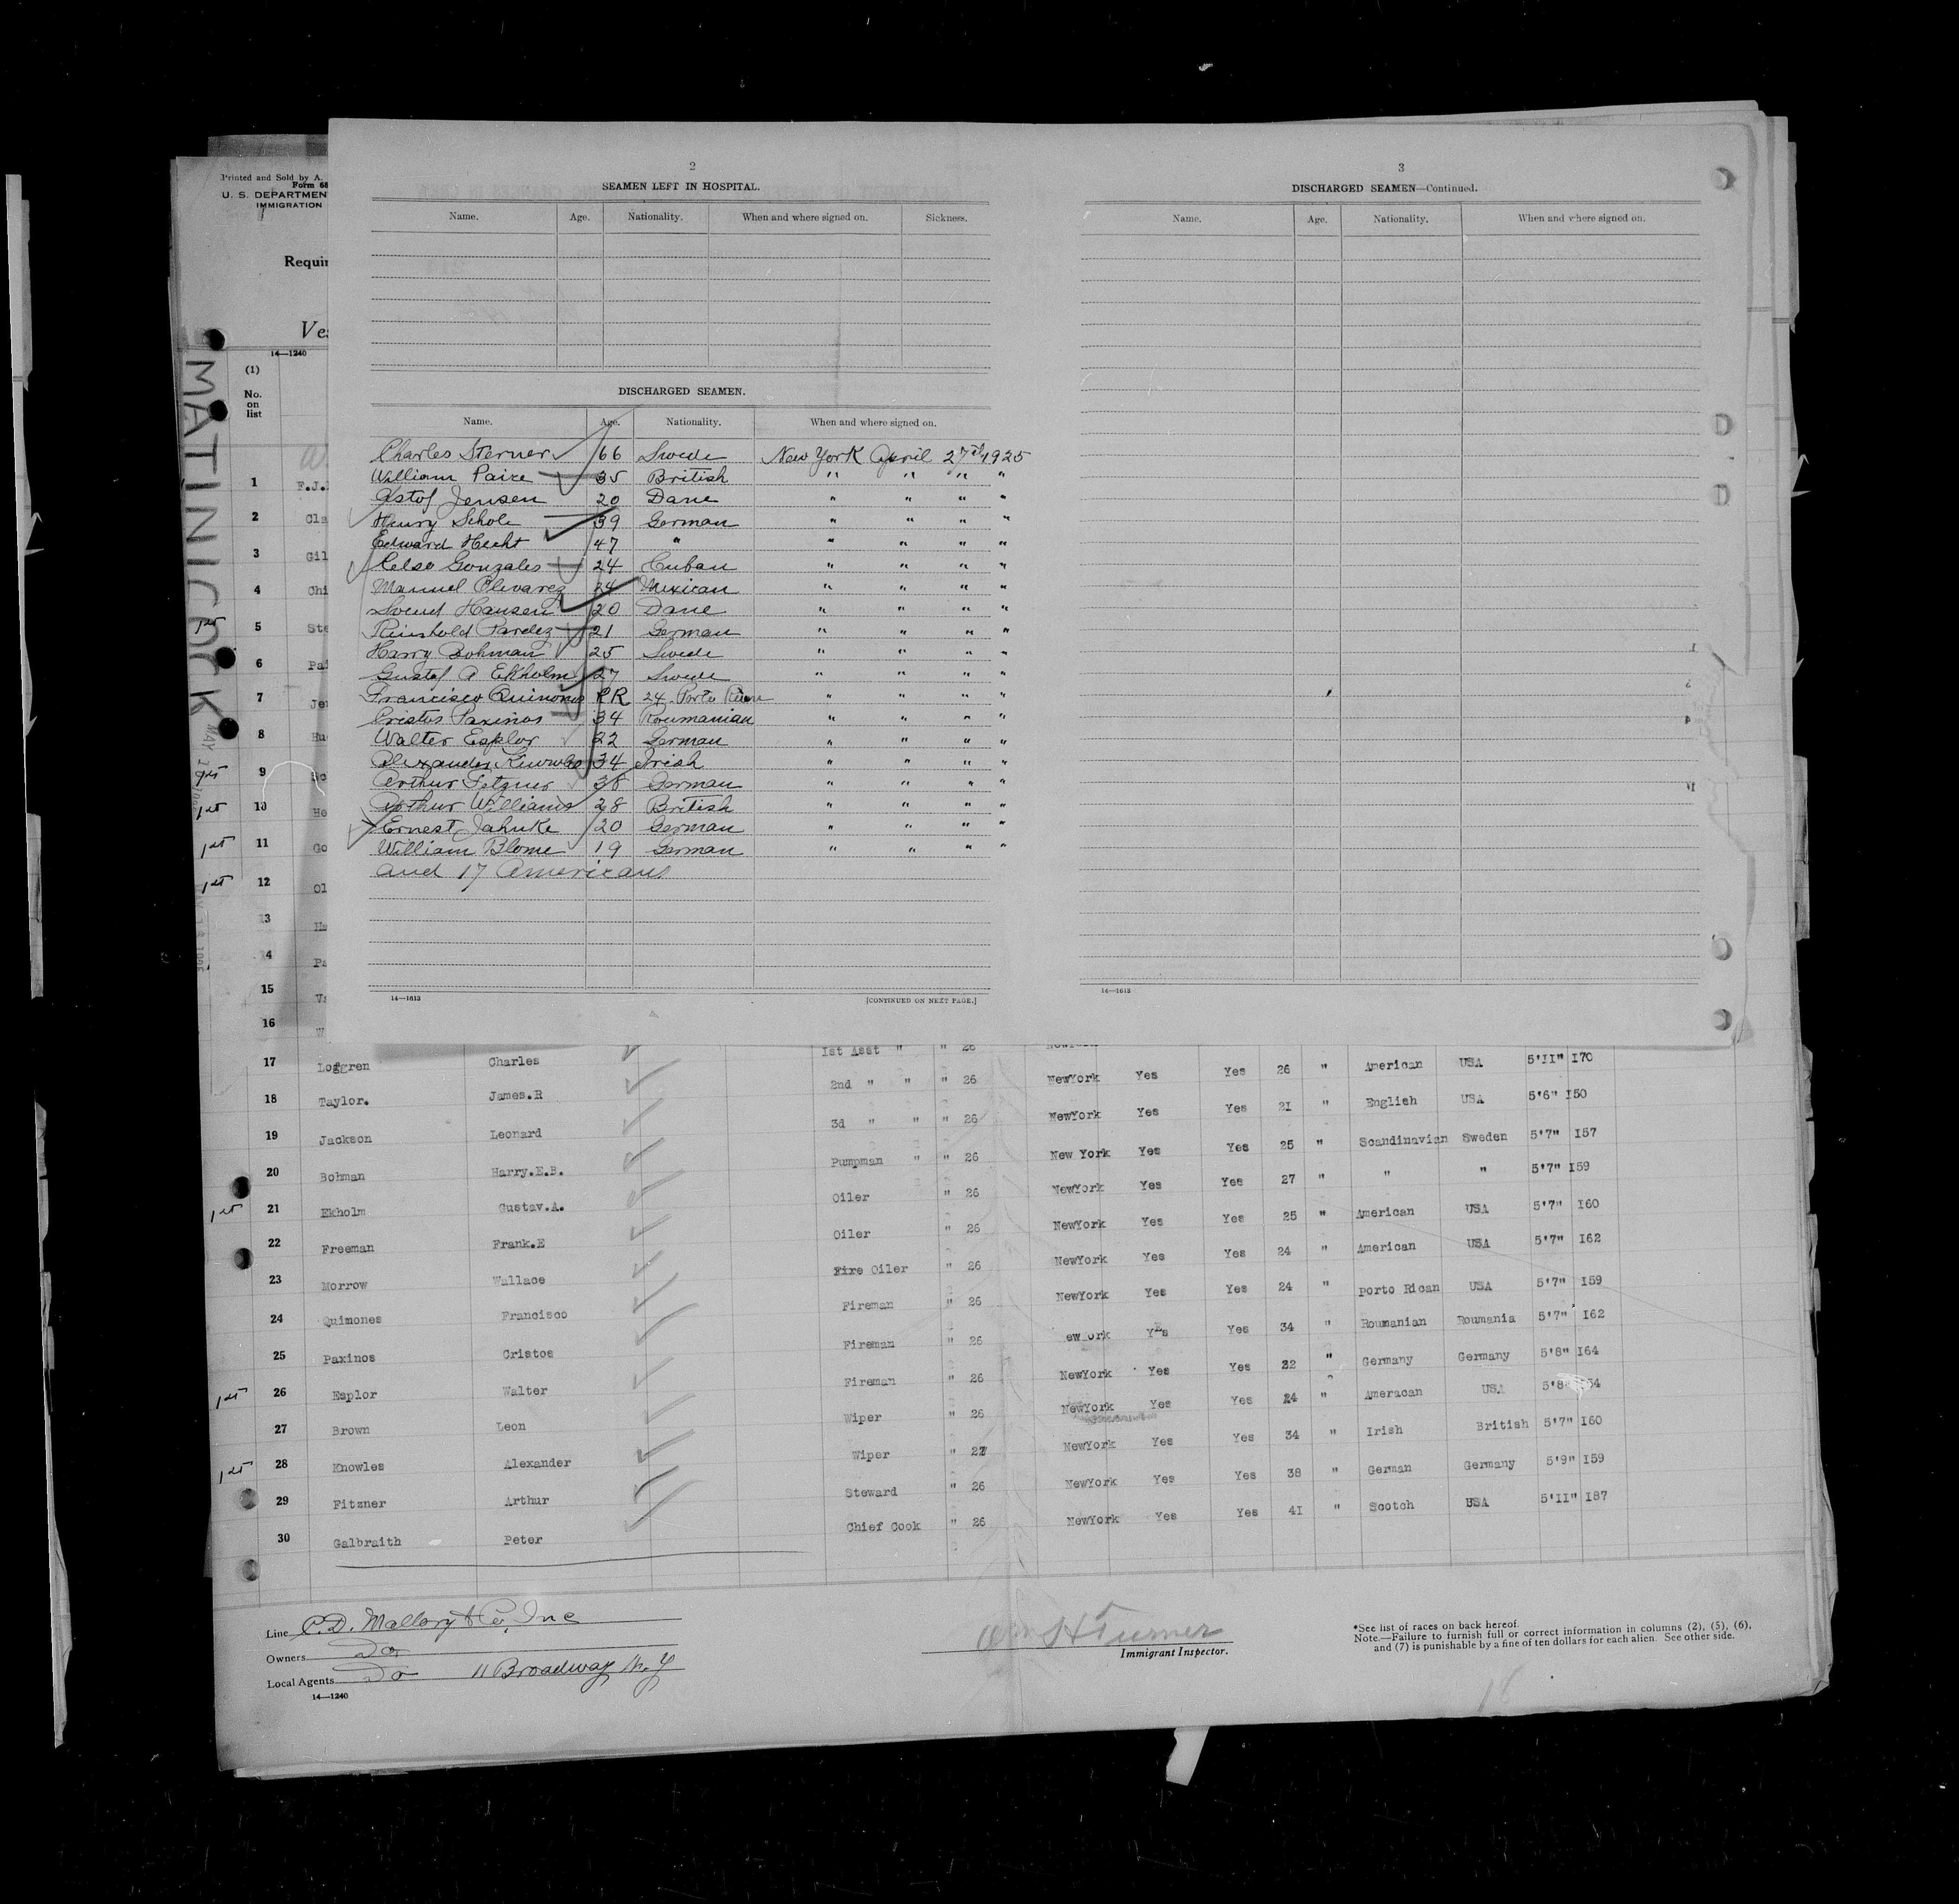 Printed and Sold by A.
Form 68
U. S. DEPARTMENT
IMMIGRATION
Requir
Ves
14—1240
(1)
No.
on
list
MATINICOCK
1 F.J.
2 Cla
3 Gil
4 Chi
1st 5 Ste
6 Pai
7 Jen
8 Hu
1st 9 Sc
1st 10 He
1st 11 Go
1st 12 Ol
13 Ha
14 Pa
15 Va
16 W
2
SEAMEN LEFT IN HOSPITAL.
Name. Age. Nationality. When and where signed on. Sickness.
DISCHARGED SEAMEN.
Name. Age. Nationality. When and where signed on.
Charles Sterner 66 Swede New York April 27th 1925
William Paice 35 British " " " "
Astof Jensen 20 Dane " " " "
Henry Schole 39 German " " " "
Edward Hecht 47 " " " " "
Celso Gonzales 24 Cuban " " " "
Manuel Olivarez 24 Mexican " " " "
Svend Hansen 20 Dane " " " "
Reinhold Pardez 21 German " " " "
Harry Bohman 25 Swede " " " "
Gustaf A Ekholm 27 Swede " " " "
Francisco Quinones PR 24 Porto " " " "
Cristos Paxinos 34 Roumanian " " " "
Walter Esplor 22 German " " " "
Alexander 34 Irish " " " "
Arthur Fitzner 38 German " " " "
Arthur Williams 28 British " " " "
Ernest Jahnke 20 German " " " "
William Blome 19 German " " " "
and 17 Americans
14—1613 [CONTINUED ON NEXT PAGE.]
3
DISCHARGED SEAMEN—Continued.
Name. Age. Nationality. When and where signed on.
14—1613
17 Loggren Charles 1st Asst " " 26 NewYork Yes Yes 26 " American USA 5'II" I70
18 Taylor. James.R 2nd " " " 26 NewYork Yes Yes 21 " English USA 5'6" I50
19 Jackson Leonard 3d " " " 26 New York Yes Yes 25 " Scandinavian Sweden 5'7" I57
20 Bohman Harry.E.B. Pumpman " " 26 NewYork Yes Yes 27 " " " 5'7" I59
1st 21 Ekholm Gustav.A. Oiler " 26 NewYork Yes Yes 25 " American USA 5'7" I60
22 Freeman Frank.E Oiler " 26 NewYork Yes Yes 24 " American USA 5'7" I62
23 Morrow Wallace Fire Oiler " 26 NewYork Yes Yes 24 " porto Rican USA 5'7" I59
24 Quimones Francisco Fireman " 26 ew ork Yes Yes 34 " Roumanian Roumania 5'7" I62
25 Paxinos Cristos Fireman " 26 NewYork Yes Yes 22 " Germany Germany 5'8" I64
1st 26 Esplor Walter Fireman " 26 NewYork Yes Yes 24 " Ameracan USA 5'8
27 Brown Leon Wiper " 26 NewYork Yes Yes 34 " Irish British 5'7" I60
1st 28 Knowles Alexander Wiper " 27 NewYork Yes Yes 38 " German Germany 5'9" I59
29 Fitzner Arthur Steward " 26 NewYork Yes Yes 41 " Scotch USA 5'II" I87
30 Galbraith Peter Chief Cook " 26
Line C.D. Mallory & Co, Inc
Owners Do
Local Agents Do 11 Broadway N.Y
14—1240
Wm H Turner
Immigrant Inspector.
*See list of races on back hereof.
Note.—Failure to furnish full or correct information in columns (2), (5), (6),
and (7) is punishable by a fine of ten dollars for each alien. See other side.